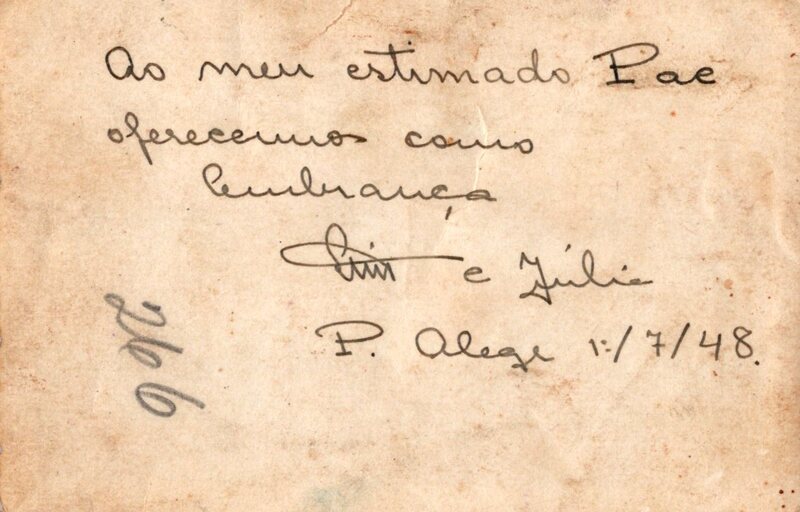 Ao meu estimado Pae
oferecemos como
lembrança
e Júlia
P. Alege 1º/7/48.
266